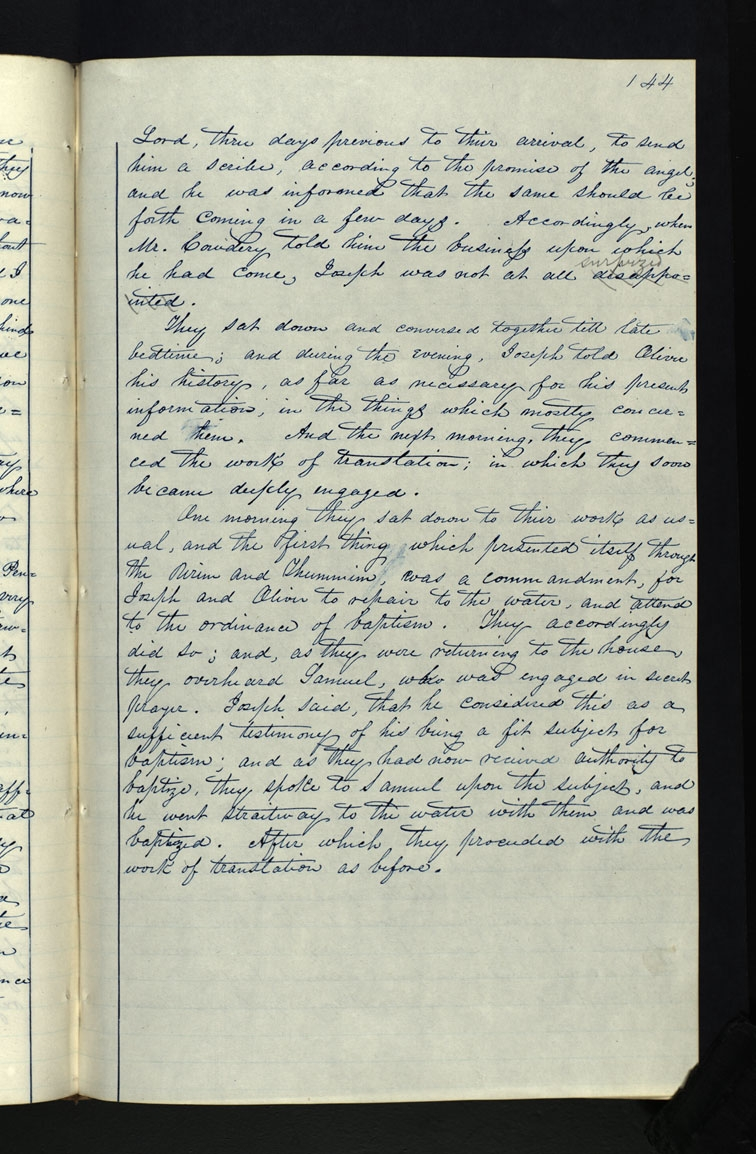 144
Lord, three days previous to their arrival, to send
him a scribe, according to the promise of the angel;
and he was informed that the same should be
forth coming in a few days. Accordingly, when
Mr. Cowdery told him the business upon which
surprized
he had come, Joseph was not at all disappo=
inted.
They sat down and conversed together till late
bedtime; and during the evening, Joseph told Oliver
his history, as far as necessary for his present
information, in the things which mostly concer=
ned them. And the next morning, they commen=
ced the work of translation; in which they soon
became deeply engaged.
One morning they sat down to their work as us=
ual, and the first thing which presented itself through
the Urim and Thummim, was a commandment, for
Joseph and Oliver to repair to the water, and attend
to the ordinance of baptism. They accordingly
did so; and, as they were returning to the house,
they overheard Samuel, who was engaged in secret
prayer. Joseph said, that he considered this as a
sufficient testimony of his being a fit subject for
baptism; and as they had now received authority to
baptize, they spoke to Samuel upon the subject, and
he went straitway to the water with them and was
baptized. After which they proceeded with the
work of translation as before.